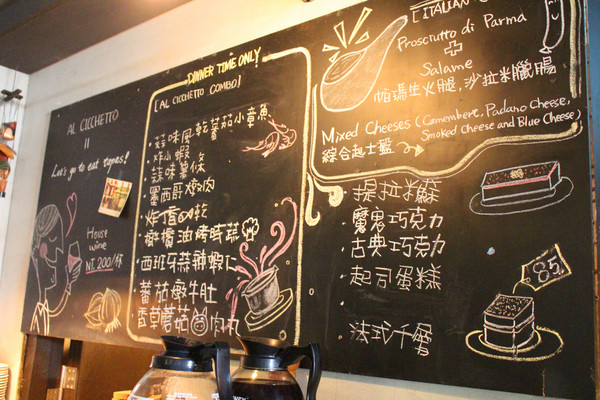 AL CICCHETTO
=
Let's go to eat tapas!
House
wine
NT.200/杯
DINNER TIME ONLY!
[AL CICCHETTO COMBO]
·蒜味風乾蕃茄小章魚
·炸小蝦
·蒜味薯條
·墨西哥燉肉
·炸
·橄欖油烤時蔬
·西班牙蒜辣蝦仁
·蕃茄燉牛肚
香草蘑菇肉丸
[ITALIAN
Prosciutto di Parma
+
Salame
帕瑪生火腿,沙拉米臘腸
Mixed Cheeses (Camembert, Padano Cheese,
Smoked Cheese and Blue Cheese)
綜合起士盤
·提拉米蘇
·魔鬼巧克力
·古典巧克力
·起司蛋糕
·法式千層
85.